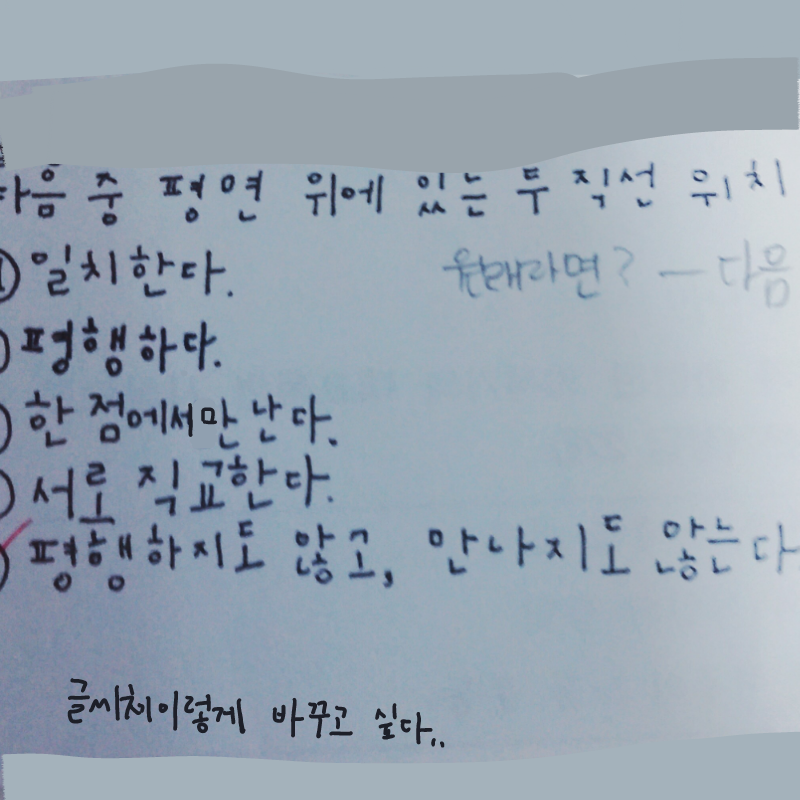 다음 중 평면 위에 있는 두 직선 위치
① 일치한다.
원래라면? — 다음
평행하다.
한 점에서만난다.
서로 직교한다.
평행하지도 않고, 만나지도 않는다.
글씨체이렇게 바꾸고 싶다..